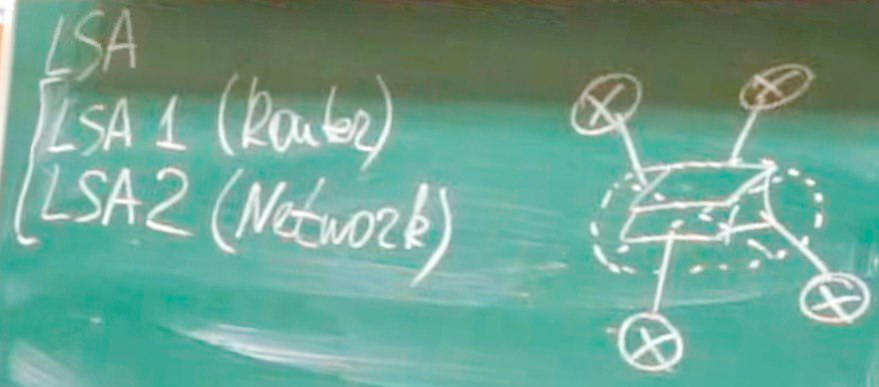 LSA
LSA 1 (Router)
LSA2 (Network)